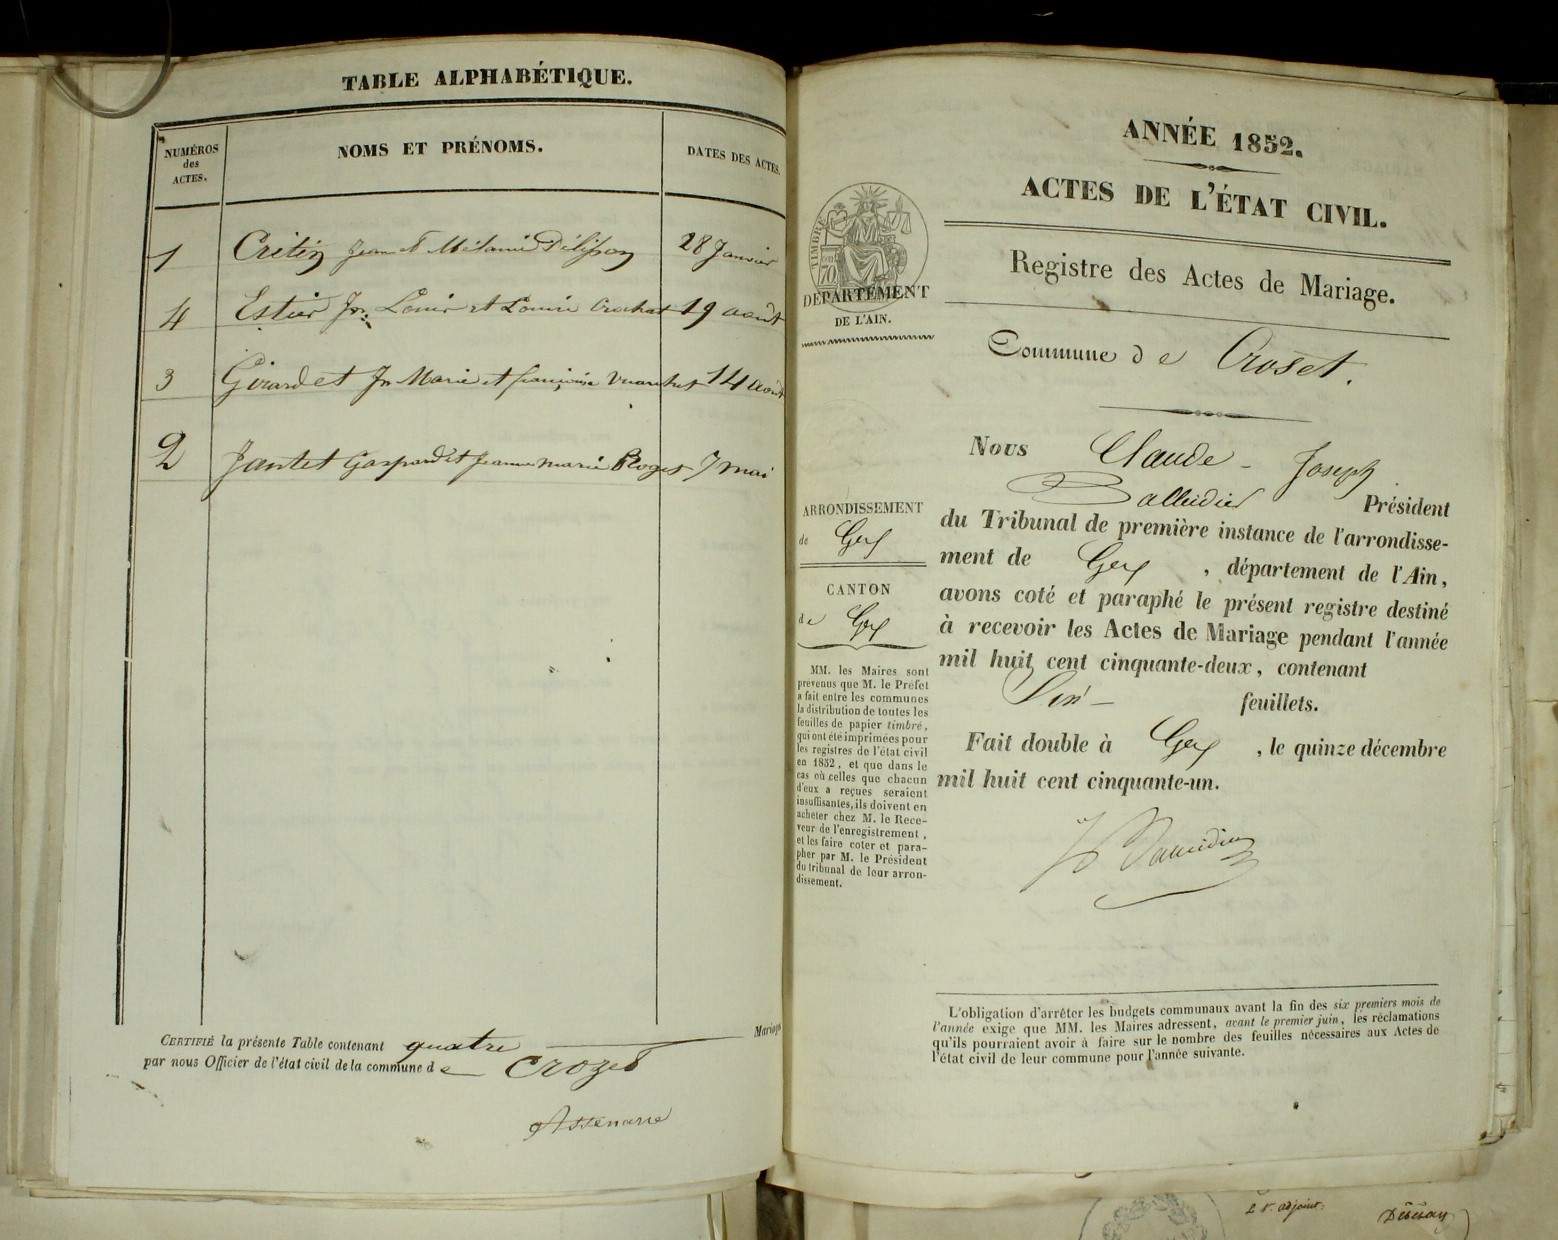 TABLE ALPHABÉTIQUE.
NUMÉROS
des
ACTES.
NOMS ET PRÉNOMS.
DATES DES ACTES.
1 Critin Jean et Mélanie 28 Janvier
4 Estier Jn. Louis et Louise Crochat 19 août
3 Girardet Jn Marie et françoise 14 août
2 Jantet Gaspard et Jeanne marie 7 mai
CERTIFIÉ la présente Table contenant quatre Mariages
par nous Officier de l'état civil de la commune de Crozet
ANNÉE 1852.
ACTES DE L'ÉTAT CIVIL.
Registre des Actes de Mariage.
TIMBRE
70
DÉPARTEMENT
DE L'AIN.
Commune de Croset.
ARRONDISSEMENT
de Gex
CANTON
de Gex
MM. les Maires sont
prévenus que M. le Préfet
a fait entre les communes
la distribution de toutes les
feuilles de papier timbré,
qui ont été imprimées pour
les registres de l'état civil
en 1852, et que dans le
cas où celles que chacun
d'eux a reçues seraient
insuffisantes, ils doivent en
acheter chez M. le Rece-
veur de l'enregistrement,
et les faire coter et para-
pher par M. le Président
du tribunal de leur arron-
dissement.
Nous Claude-Joseph
Balleidier Président
du Tribunal de première instance de l'arrondisse-
ment de Gex, département de l'Ain,
avons coté et paraphé le présent registre destiné
à recevoir les Actes de Mariage pendant l'année
mil huit cent cinquante-deux, contenant
feuillets.
Fait double à Gex, le quinze décembre
mil huit cent cinquante-un.
L'obligation d'arrêter les budgets communaux avant la fin des six premiers mois de
l'année exige que MM. les Maires adressent, avant le premier juin, les réclamations
qu'ils pourraient avoir à faire sur le nombre des feuilles nécessaires aux Actes de
l'état civil de leur commune pour l'année suivante.
adjoint